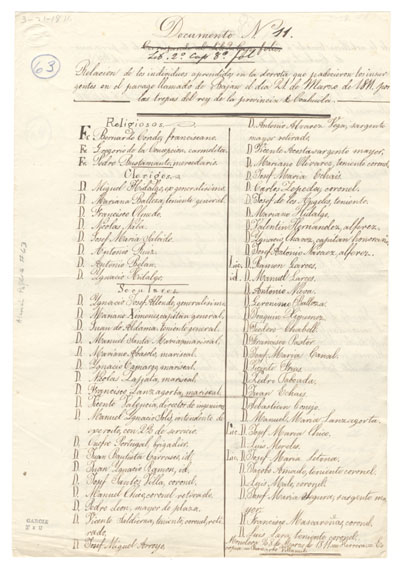 Documento Nº 11.
Lib. 2º Cap 8º fol
63
Relacion de los individuos aprendidos en la derrota que padecieron los insur-
gentes en el parage llamado de Bajan el dia 21 de Marzo de 1811, por
las tropas del rey de la provincia de Coahuila.
Religiosos
Fr. Bernardo Conde, franciscano.
Fr. Gregorio de la Concepcion, carmelita.
Fr. Pedro Bustamante, mercedario.
Clerigos
D. Miguel Hidalgo, ex generalisimo.
D. Mariano Balleza, teniente general.
D. Francisco Olmedo.
D. Nicolas Nava.
D. José Maria Salcido.
D. Antonio Ruiz.
D. Antonio Belan.
D. Ignacio Hidalgo
Seculares
D. Ignacio José Allende, generalisimo.
D. Mariano Ximenez, capitan general.
D. Juan de Aldama, teniente general.
D. Manuel Santa Maria, mariscal.
D. Mariano Abasolo, mariscal.
D. Ignacio Camargo, mariscal.
D. Nicolas Zapata, mariscal.
D. Francisco Lanzagorta, mariscal.
D. Vicente Valencia, director de ingenieros
D. Manuel Ignacio Solis, intendente de
ejercito, con de servicio.
D. Onofre Portugal, brigadier.
D. Juan Bautista Carrasco, id.
D. Juan Ignacio Ramon, id.
D. José Santos Villa, coronel.
D. Manuel Chaves, coronel retirado.
D. Pedro Leon, mayor de plaza.
D. Vicente Saldierna, teniente coronel reti-
rado.
D. José Miguel Arroyo.
D. Antonio Alvarez Vega, sargento
mayor retirado.
D. Vicente Acosta, sargento mayor.
D. Mariano Olivares, teniente coronel.
D. José Maria Echais
D. Carlos Zepeda, coronel.
D. José de los Angeles, teniente.
D. Mariano Hidalgo.
D. Valentin Hernandez, alferez.
D. Ignacio Chavez, capitan
D. José Antonio Narvaez, alferez.
Lic. D. Ramon Garces.
id. D. Manuel Garces.
D. Antonio Nieva.
D. Geronimo Balleza.
D. Joaquin Ximenez.
D. Teodoro Chabell
D. Francisco Pastor
D. José Maria Canal.
D. Vicente Frias.
D. Pedro Taboada.
D. Sebastian Conejo.
D. Manuel Maria Lanzagorta
Lic. D. José Maria Chico.
D. Luis
Lic. D. José Maria Letona.
D. Jacobo Amado, teniente coronel.
D. Luis Mele, coronel.
D. José Maria Segura, sargento ma-
yor.
D. Francisco Mascareñas, coronel.
D. Luis Lara, teniente coronel.
Monclova 28 de Marzo de 1811.